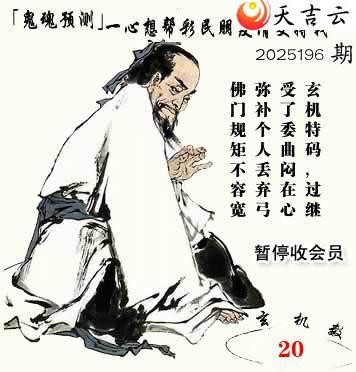 「鬼魂预测」一心想帮彩民朋友
天吉云
2025196 期
玄机特码，过继
受了委曲闷在心
弥补个人丢弃弓
佛门规矩不容宽
暂停收会员
玄机数
20